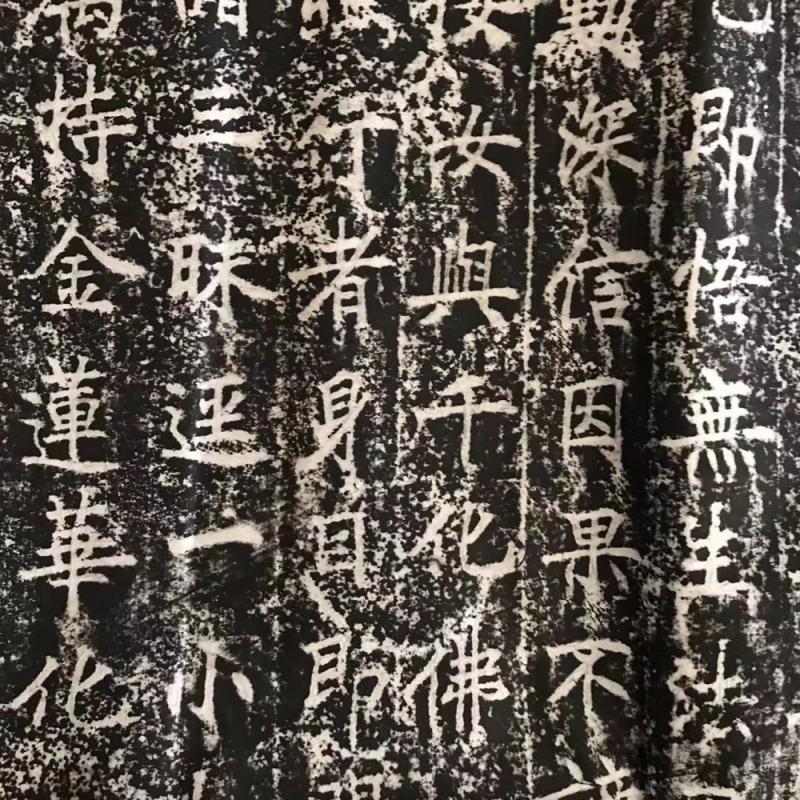 即悟無生法
深信因果不
汝與千化佛
行者身目即
三昧逕一小
持金蓮華化